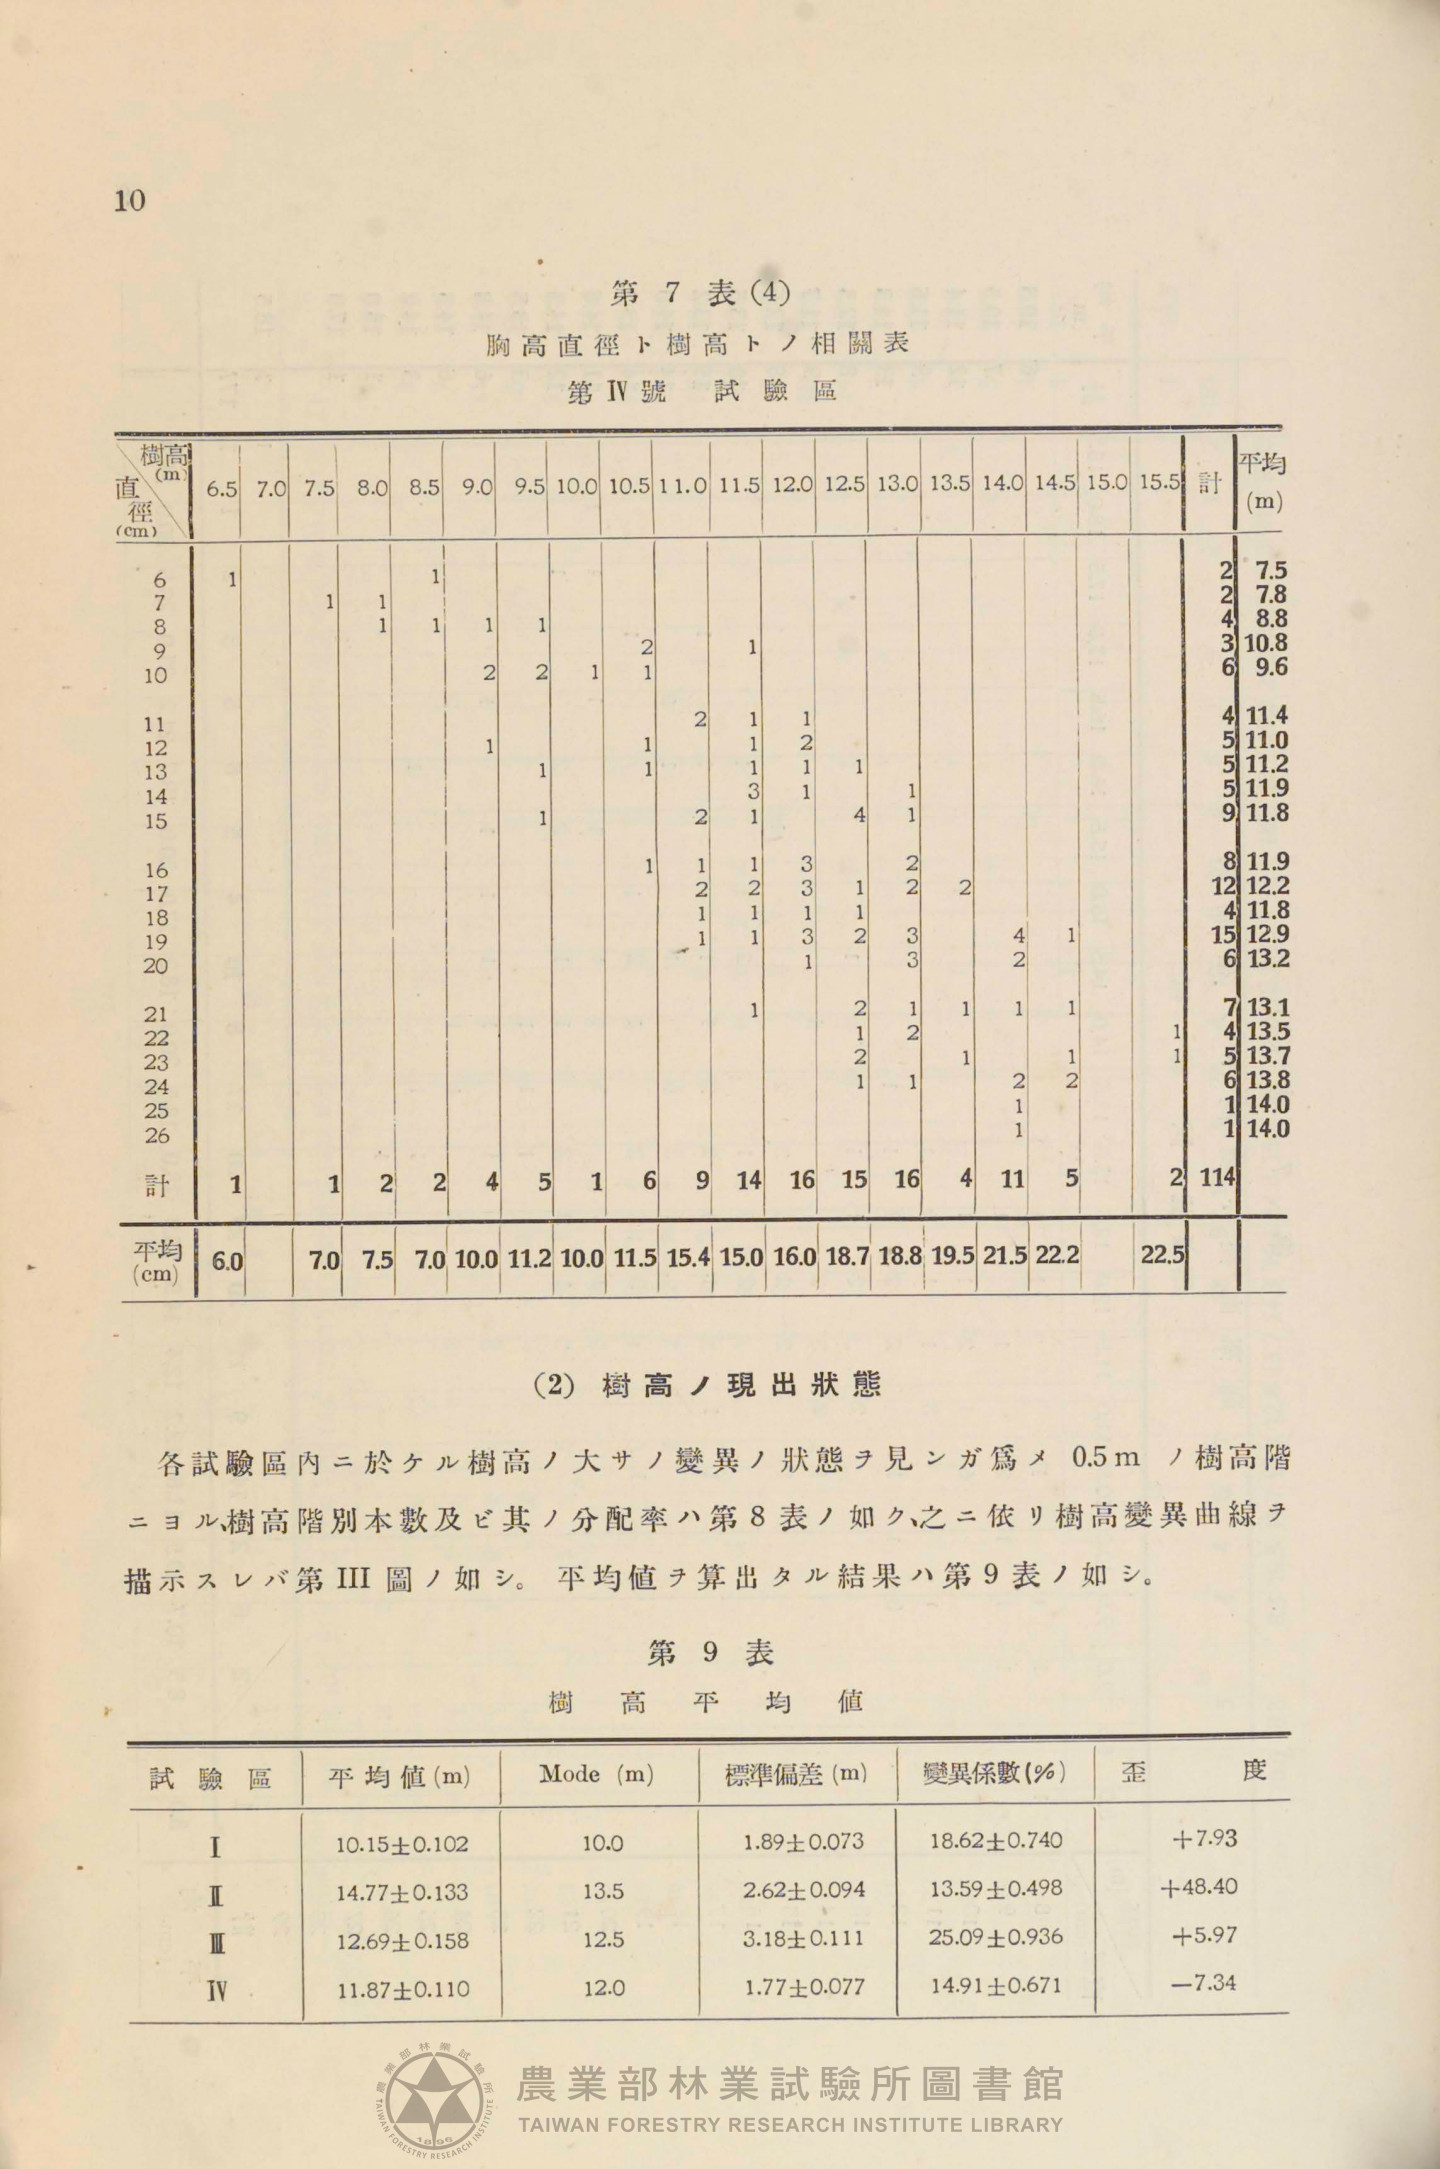 10
第 7 表 (4)
胸高直徑ト樹高トノ相關表
第 IV 號 試驗區
樹高(m) 直徑(cm) 6.5 7.0 7.5 8.0 8.5 9.0 9.5 10.0 10.5 11.0 11.5 12.0 12.5 13.0 13.5 14.0 14.5 15.0 15.5 計 平均(m)
6 1 1 2 7.5
7 1 1 2 7.8
8 1 1 1 1 4 8.8
9 2 1 3 10.8
10 2 2 1 1 6 9.6
11 2 1 1 4 11.4
12 1 1 1 2 5 11.0
13 1 1 1 1 1 5 11.2
14 3 1 1 5 11.9
15 1 2 1 4 1 9 11.8
16 1 1 1 3 2 8 11.9
17 2 2 3 1 2 2 12 12.2
18 1 1 1 1 4 11.8
19 1 1 3 2 3 4 1 15 12.9
20 1 3 2 6 13.2
21 1 2 1 1 1 1 7 13.1
22 1 2 1 4 13.5
23 2 1 1 1 5 13.7
24 1 1 2 2 6 13.8
25 1 1 14.0
26 1 1 14.0
計 1 1 2 2 4 5 1 6 9 14 16 15 16 4 11 5 2 114
平均(cm) 6.0 7.0 7.5 7.0 10.0 11.2 10.0 11.5 15.4 15.0 16.0 18.7 18.8 19.5 21.5 22.2 22.5
(2) 樹高ノ現出狀態
各試驗區內ニ於ケル樹高ノ大サノ變異ノ狀態ヲ見ンガ爲メ 0.5 m ノ樹高階
ニヨル、樹高階別本數及ビ其ノ分配率ハ第 8 表ノ如ク、之ニ依リ樹高變異曲線ヲ
描示スレバ第 III 圖ノ如シ。 平均値ヲ算出タル結果ハ第 9 表ノ如シ。
第 9 表
樹高平均値
試驗區 平均値(m) Mode (m) 標準偏差(m) 變異係數(%) 歪度
I 10.15±0.102 10.0 1.89±0.073 18.62±0.740 +7.93
II 14.77±0.133 13.5 2.62±0.094 13.59±0.498 +48.40
III 12.69±0.158 12.5 3.18±0.111 25.09±0.936 +5.97
IV 11.87±0.110 12.0 1.77±0.077 14.91±0.671 −7.34
農業部林業試驗所
TAIWAN FORESTRY RESEARCH INSTITUTE
1896
農業部林業試驗所圖書館
TAIWAN FORESTRY RESEARCH INSTITUTE LIBRARY